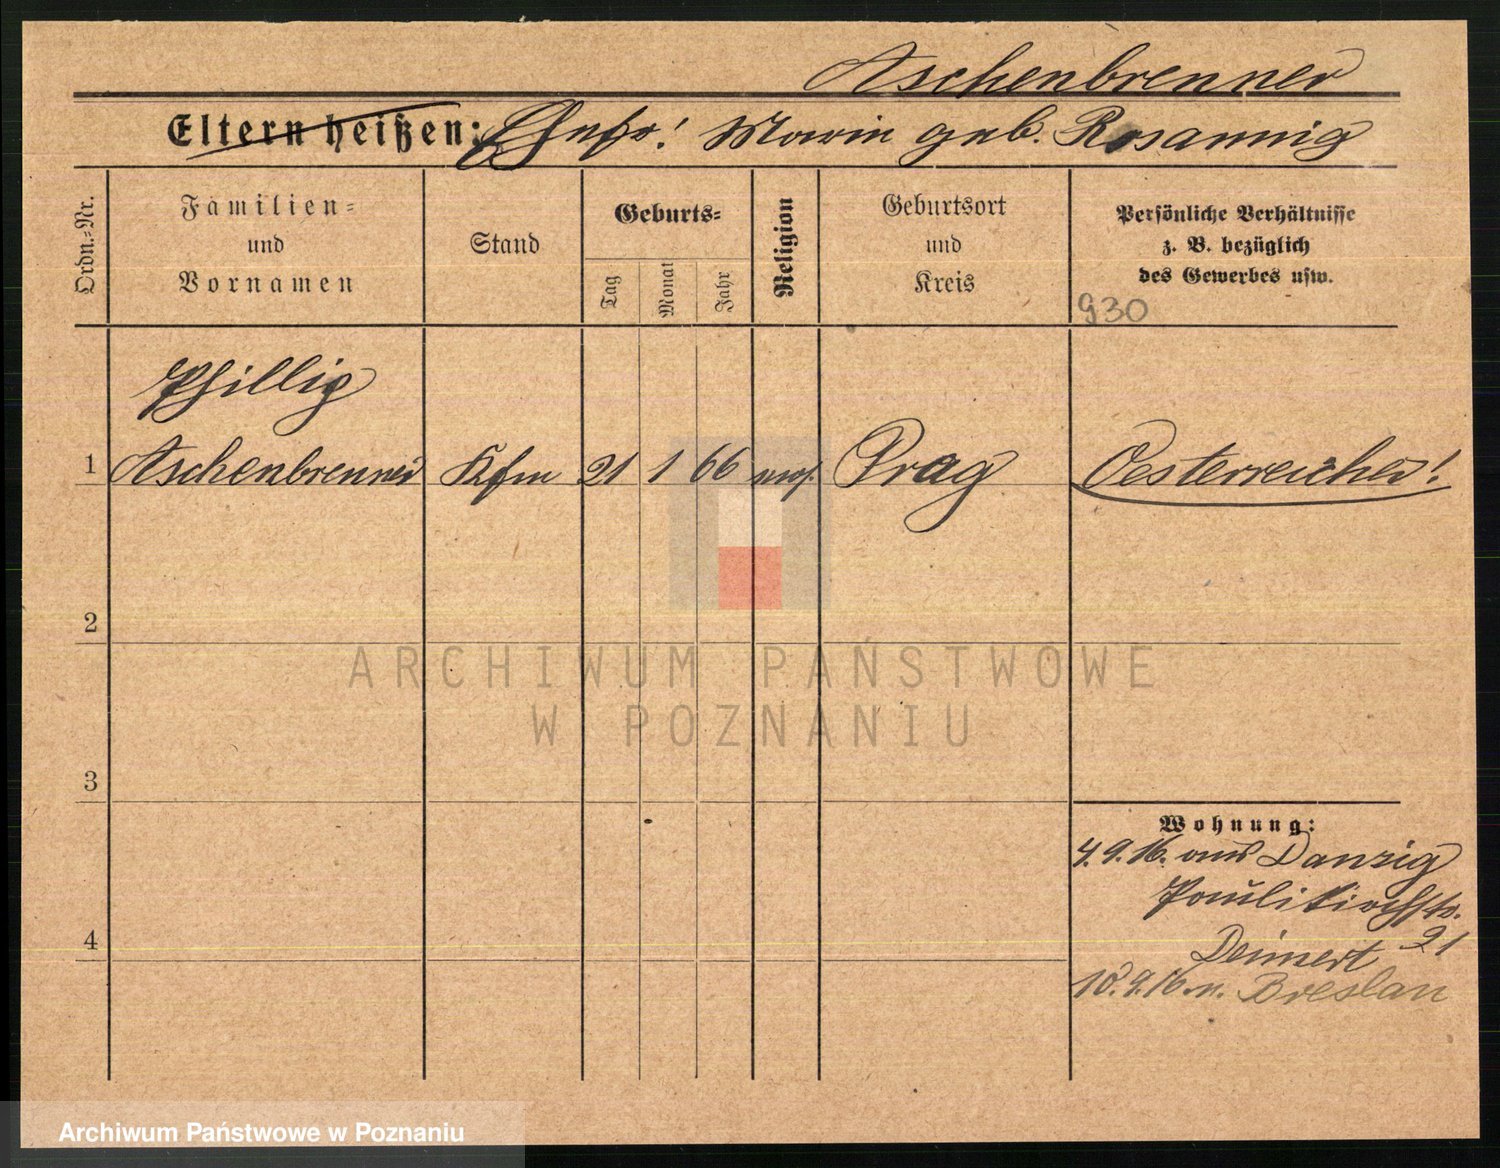 Aschenbrenner
Eltern heißen: Ehefr! Marie geb. Rosannig
Ordn.-Nr.
Familien-
und
Vornamen
Stand
Geburts-
Tag
Monat
Jahr
Religion
Geburtsort
und
Kreis
Persönliche Verhältnisse
z. B. bezüglich
des Gewerbes usw.
930
Phillip
1 Aschenbrenner Kfm 21 1 66 mos. Prag Oesterreicher!
2
3
4
Wohnung:
4.9.16. aus Danzig
Paulikirchstr.
21
18.9.16. n. Breslau
ARCHIWUM PAŃSTWOWE
W POZNANIU
Archiwum Państwowe w Poznaniu